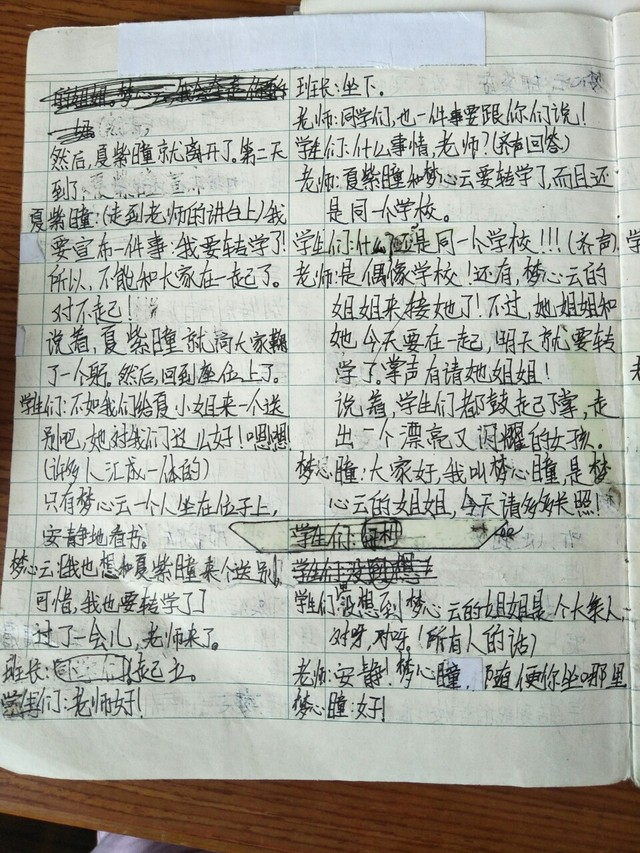 然后,夏紫瞳就离开了。第二天
到了,
夏紫瞳:(走到老师的讲台上)我
要宣布一件事:我要转学了!
所以,不能和大家在一起了。
对不起!
说着,夏紫瞳就高大家鞠
了一个躬。然后,回到座位上了。
学生们:不如我们给夏小姐来一个送
别吧,她对我们这么好!嗯想
(许多人汇成一体的)
只有梦心云一个人坐在位子上,
安静地看书。
梦心云:[我也想和夏紫瞳来个送别,
可惜,我也要转学了]
过了一会儿,老师来了。
班长:起立。
学生们:老师好!
班长:坐下。
老师:同学们,也一件事要跟你们说!
学生们:什么事情,老师?(齐声回答)
老师:夏紫瞳和梦心云要转学了,而且还
是同一个学校。
学生们:什么?还是同一个学校!!!(齐声)
老师:是偶像学校!还有,梦心云的
姐姐来接她了!不过,她姐姐和
她今天要在一起,明天就要转
学了。掌声有请她姐姐!
说着,学生们都鼓起了掌,走
出一个漂亮又闪耀的女孩。
梦心瞳:大家好,我叫梦心瞳,是梦
心云的姐姐,今天请多多关照!
学生们:
学生们:没想到梦心云的姐姐是个大美人,
对呀,对呀。(所有人的话)
老师:安静!梦心瞳,随便你坐哪里
梦心瞳:好!